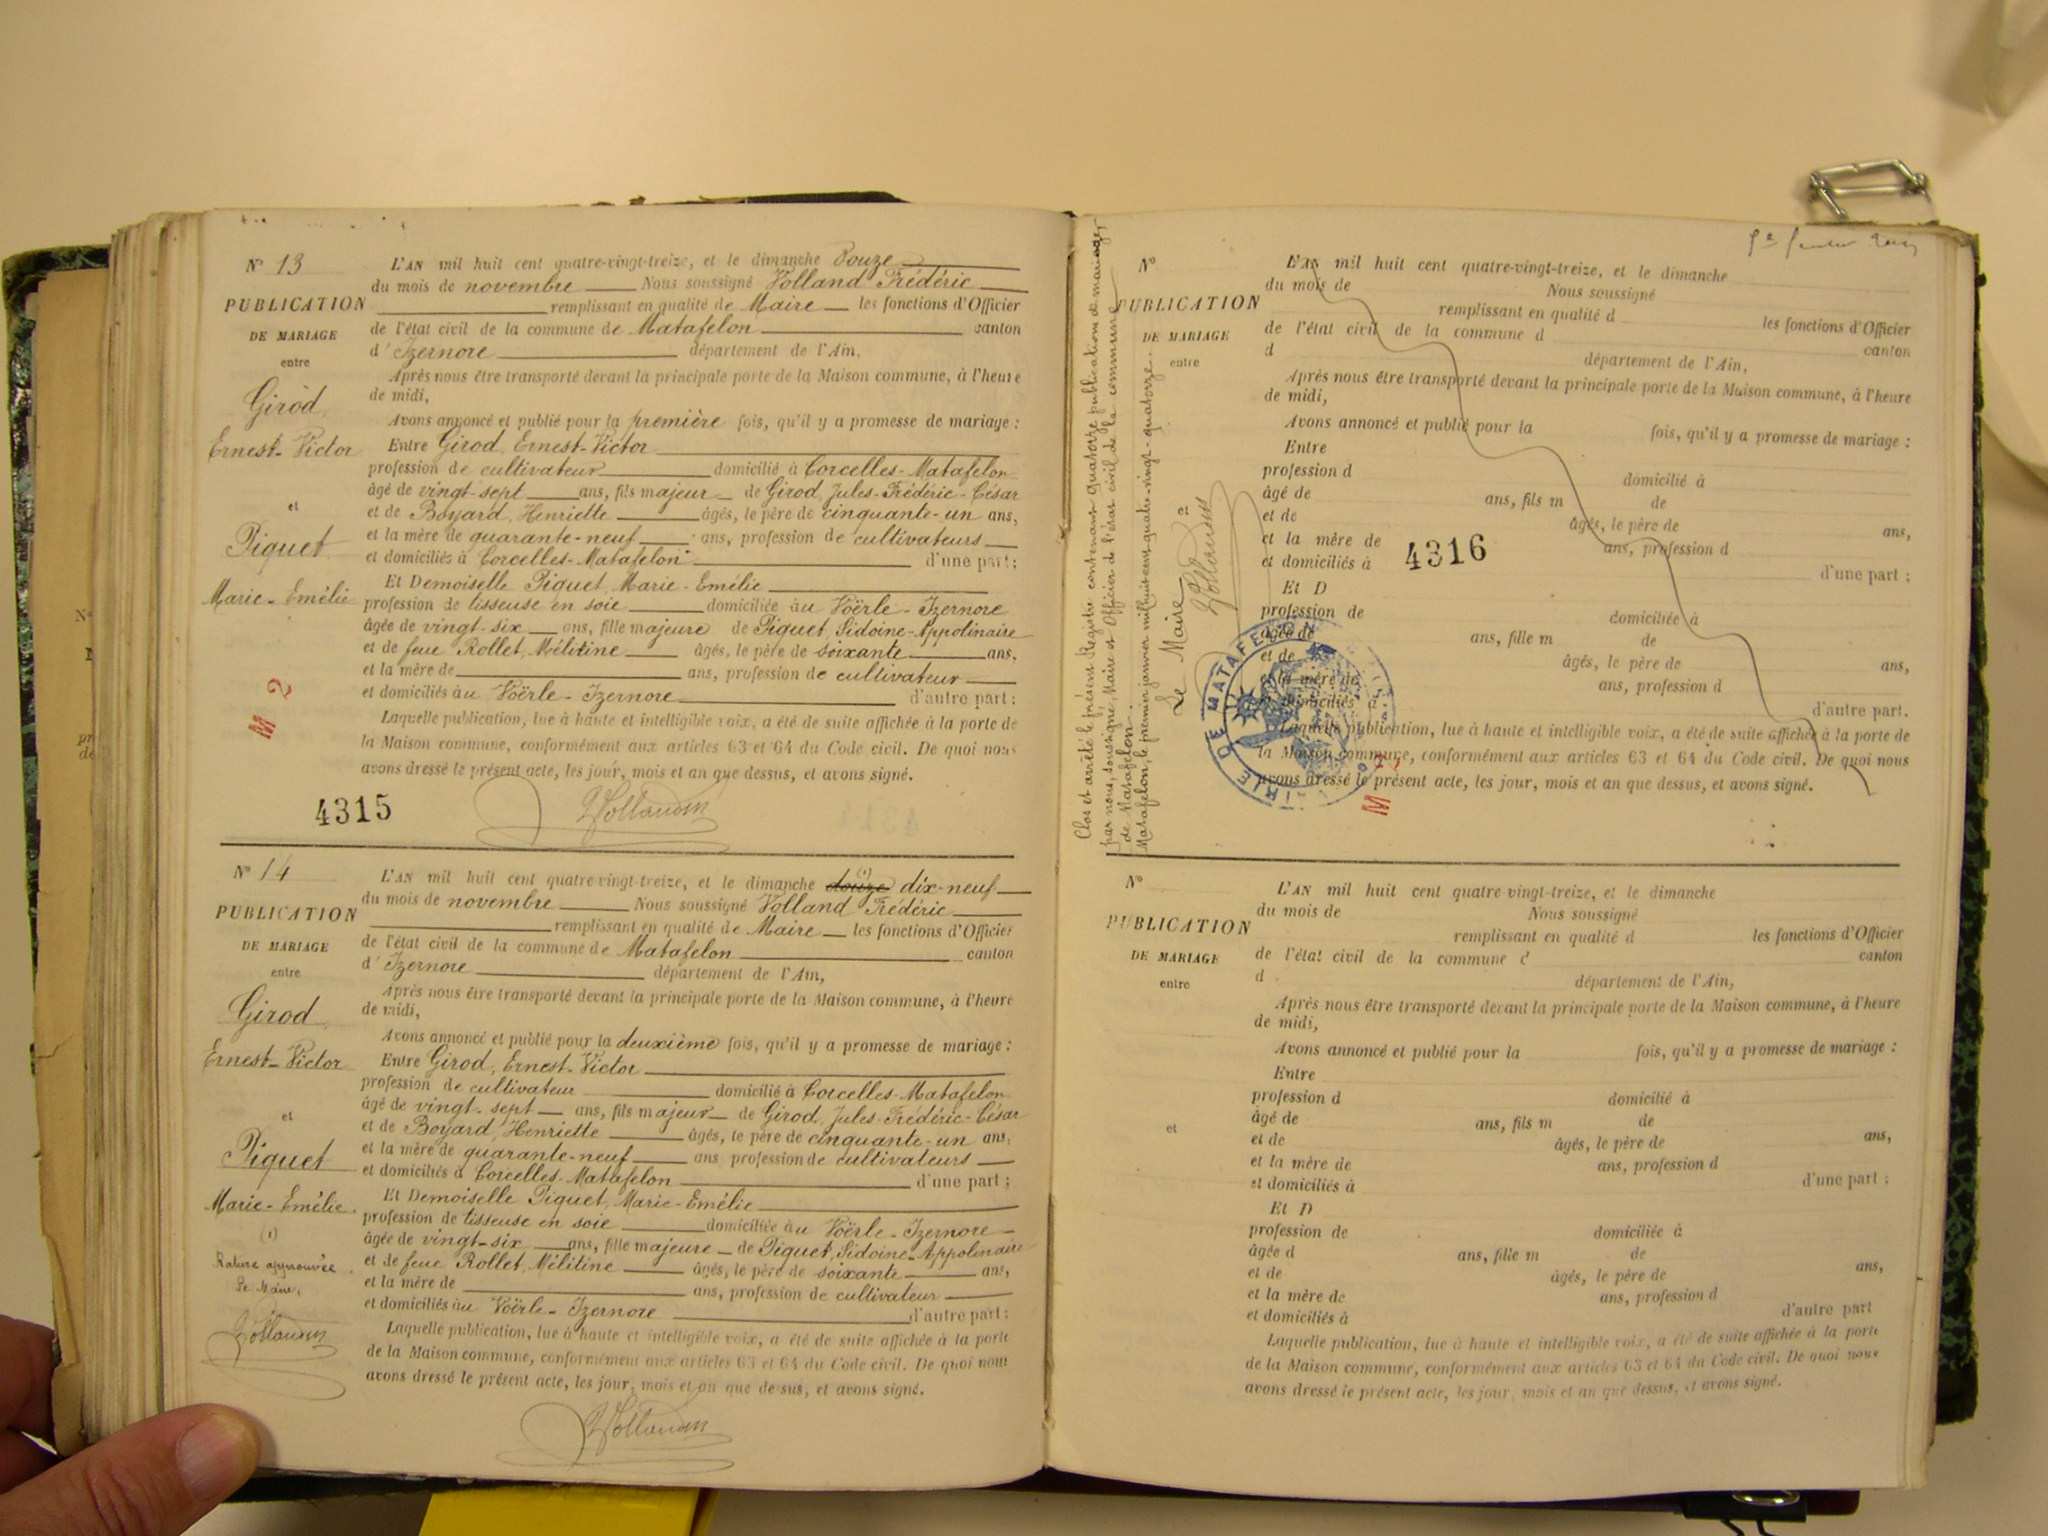 N° 13
L'AN mil huit cent quatre-vingt-treize, et le dimanche Douze
du mois de novembre Nous soussigné Volland Frédéric
PUBLICATION
remplissant en qualité de Maire les fonctions d'Officier
DE MARIAGE
de l'état civil de la commune de Matafelon canton
entre
d'Izernore département de l'Ain,
Après nous être transporté devant la principale porte de la Maison commune, à l'heure
de midi,
Girod
Avons annoncé et publié pour la première fois, qu'il y a promesse de mariage :
Ernest-Victor
Entre Girod, Ernest-Victor
profession de cultivateur domicilié à Corcelles-Matafelon
âgé de vingt-sept ans, fils majeur de Girod, Jules-Frédéric-César
et
et de Boyard, Henriette âgés, le père de cinquante-un ans,
Piquet
et la mère de quarante-neuf ans, profession de cultivateurs
et domiciliés à Corcelles-Matafelon d'une part ;
Marie-Emélie
Et Demoiselle Piquet, Marie-Emélie
profession de tisseuse en soie domiciliée au Voërle-Izernore
âgée de vingt-six ans, fille majeure de Piquet, Sidoine-Appolinaire
et de feue Rollet, Mélitine âgés, le père de soixante ans,
et la mère de ans, profession de cultivateur
et domiciliés au Voërle-Izernore d'autre part :
M 2
Laquelle publication, lue à haute et intelligible voix, a été de suite affichée à la porte de
la Maison commune, conformément aux articles 63 et 64 du Code civil. De quoi nous
avons dressé le présent acte, les jour, mois et an que dessus, et avons signé.
4315
N° 14
L'AN mil huit cent quatre-vingt-treize, et le dimanche douze (1) dix-neuf
du mois de novembre Nous soussigné Volland Frédéric
PUBLICATION
remplissant en qualité de Maire les fonctions d'Officier
DE MARIAGE
de l'état civil de la commune de Matafelon canton
entre
d'Izernore département de l'Ain,
Après nous être transporté devant la principale porte de la Maison commune, à l'heure
de midi,
Girod
Avons annoncé et publié pour la deuxième fois, qu'il y a promesse de mariage :
Ernest-Victor
Entre Girod, Ernest-Victor
profession de cultivateur domicilié à Corcelles-Matafelon
âgé de vingt-sept ans, fils majeur de Girod, Jules-Frédéric-César
et
et de Boyard, Henriette âgés, le père de cinquante-un ans,
Piquet
et la mère de quarante-neuf ans profession de cultivateurs
et domiciliés à Corcelles-Matafelon d'une part ;
Marie-Emélie
Et Demoiselle Piquet, Marie-Emélie
profession de tisseuse en soie domiciliée au Voërle-Izernore
âgée de vingt-six ans, fille majeure de Piquet, Sidoine-Appolinaire
et de feue Rollet, Mélitine âgés, le père de soixante ans,
et la mère de ans, profession de cultivateur
et domiciliés au Voërle-Izernore d'autre part :
(1)
Rature approuvée
Le Maire,
Laquelle publication, lue à haute et intelligible voix, a été de suite affichée à la porte
de la Maison commune, conformément aux articles 63 et 64 du Code civil. De quoi nous
avons dressé le présent acte, les jour, mois et an que dessus, et avons signé.
Clos et arrêté le présent Registre contenant quatorze publications de mariages,
par nous, soussigné, Maire et Officier de l'état civil de la commune
de Matafelon.
Matafelon, le premier janvier mil huit cent quatre-vingt-quatorze.
Le Maire
N°
L'AN mil huit cent quatre-vingt-treize, et le dimanche
du mois de Nous soussigné
PUBLICATION
remplissant en qualité d les fonctions d'Officier
DE MARIAGE
de l'état civil de la commune d canton
entre
d département de l'Ain,
Après nous être transporté devant la principale porte de la Maison commune, à l'heure
de midi,
Avons annoncé et publié pour la fois, qu'il y a promesse de mariage :
Entre
profession d domicilié à
âgé de ans, fils m de
et
et de âgés, le père de ans,
et la mère de ans, profession d
et domiciliés à d'une part ;
4316
Et D
profession de domiciliée à
âgée de ans, fille m de
et de âgés, le père de ans,
et la mère de ans, profession d
et domiciliés à d'autre part.
MAIRIE DE MATAFELON
Laquelle publication, lue à haute et intelligible voix, a été de suite affichée à la porte de
la Maison commune, conformément aux articles 63 et 64 du Code civil. De quoi nous
avons dressé le présent acte, les jour, mois et an que dessus, et avons signé.
M
N°
L'AN mil huit cent quatre-vingt-treize, et le dimanche
du mois de Nous soussigné
PUBLICATION
remplissant en qualité d les fonctions d'Officier
DE MARIAGE
de l'état civil de la commune d canton
entre
d département de l'Ain,
Après nous être transporté devant la principale porte de la Maison commune, à l'heure
de midi,
Avons annoncé et publié pour la fois, qu'il y a promesse de mariage :
Entre
profession d domicilié à
âgé de ans, fils m de
et
et de âgés, le père de ans,
et la mère de ans, profession d
et domiciliés à d'une part ;
Et D
profession de domiciliée à
âgée d ans, fille m de
et de âgés, le père de ans,
et la mère de ans, profession d
et domiciliés à d'autre part
Laquelle publication, lue à haute et intelligible voix, a été de suite affichée à la porte
de la Maison commune, conformément aux articles 63 et 64 du Code civil. De quoi nous
avons dressé le présent acte, les jour, mois et an que dessus, et avons signé.